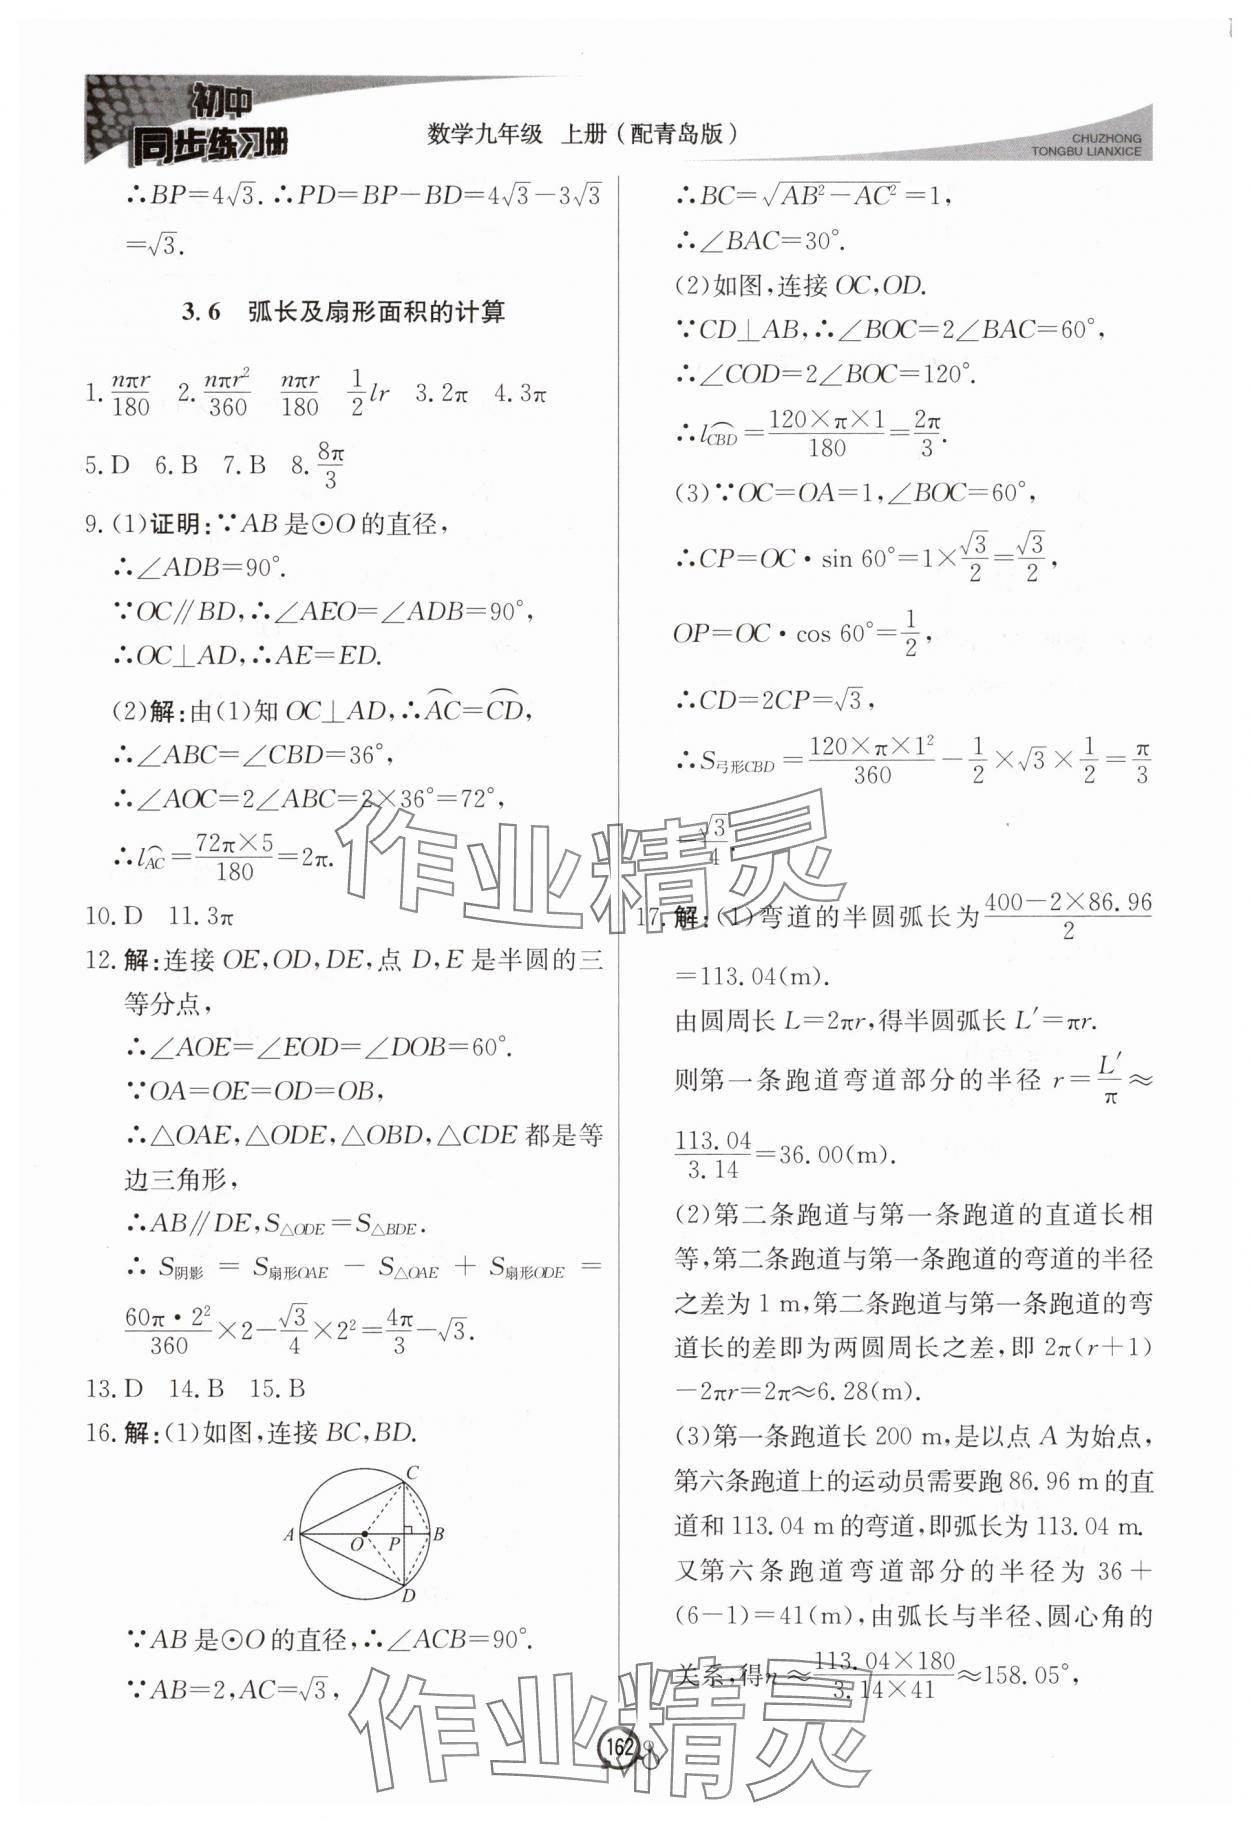 初中
同步练习册
数学九年级 上册（配青岛版）
CHUZHONG
TONGBU LIANXICE
∴BP=4√3. ∴PD=BP-BD=4√3-3√3
=√3.
3.6 弧长及扇形面积的计算
1. nπr/180 2. nπr²/360 nπr/180 1/2 lr 3. 2π 4. 3π
5. D 6. B 7. B 8. 8π/3
9. (1)证明:∵AB是⊙O的直径,
∴∠ADB=90°.
∵OC∥BD,∴∠AEO=∠ADB=90°,
∴OC⊥AD,∴AE=ED.
(2)解:由(1)知OC⊥AD,∴⌒AC=⌒CD,
∴∠ABC=∠CBD=36°,
∴∠AOC=2∠ABC=2×36°=72°,
∴l⌒AC=72π×5/180=2π.
10. D 11. 3π
12. 解:连接OE,OD,DE,点D,E是半圆的三
等分点,
∴∠AOE=∠EOD=∠DOB=60°.
∵OA=OE=OD=OB,
∴△OAE,△ODE,△OBD,△CDE都是等
边三角形,
∴AB∥DE,S△ODE=S△BDE.
∴S阴影=S扇形OAE-S△OAE+S扇形ODE=
60π·2²/360×2-√3/4×2²=4π/3-√3.
13. D 14. B 15. B
16. 解:(1)如图,连接BC,BD.
C
A O P B
D
∵AB是⊙O的直径,∴∠ACB=90°.
∵AB=2,AC=√3,
∴BC=√(AB²-AC²)=1,
∴∠BAC=30°.
(2)如图,连接OC,OD.
∵CD⊥AB,∴∠BOC=2∠BAC=60°,
∴∠COD=2∠BOC=120°.
∴l⌒CBD=120×π×1/180=2π/3.
(3)∵OC=OA=1,∠BOC=60°,
∴CP=OC·sin 60°=1×√3/2=√3/2,
OP=OC·cos 60°=1/2,
∴CD=2CP=√3,
∴S弓形CBD=120×π×1²/360-1/2×√3×1/2=π/3
-√3/4.
17. 解:(1)弯道的半圆弧长为(400-2×86.96)/2
=113.04(m).
由圆周长L=2πr,得半圆弧长L′=πr.
则第一条跑道弯道部分的半径r=L′/π≈
113.04/3.14=36.00(m).
(2)第二条跑道与第一条跑道的直道长相
等,第二条跑道与第一条跑道的弯道的半径
之差为1 m,第二条跑道与第一条跑道的弯
道长的差即为两圆周长之差,即2π(r+1)
-2πr=2π≈6.28(m).
(3)第一条跑道长200 m,是以点A为始点,
第六条跑道上的运动员需要跑86.96 m的直
道和113.04 m的弯道,即弧长为113.04 m.
又第六条跑道弯道部分的半径为36+
(6-1)=41(m),由弧长与半径、圆心角的
关系,得n≈113.04×180/3.14×41≈158.05°,
作业精灵
作业精灵
162